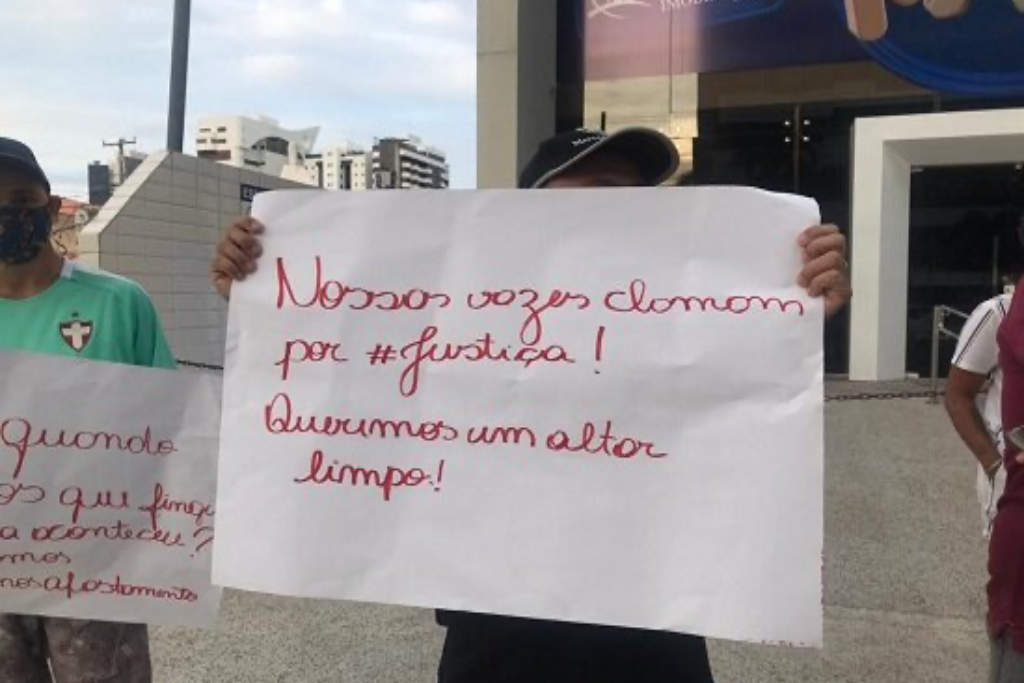 Nossas vozes clamam
por #Justiça!
Querimos um altar
limpo!
Quando
os que fing
a aconteceu?
mos
mos afastamento